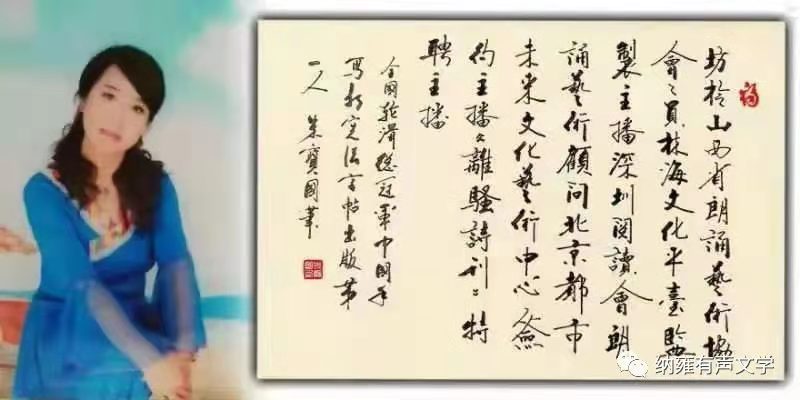 福
坊柃山西省朗誦藝術協
會〻員林海文化平臺監
製主播深圳閱讀會朗
誦藝術顧問北京都市
未来文化藝術中心簽
約主播《離騷詩刊》特
聘主播
全國輪滑總冠軍中國手
寫新憲法字帖出版第
一人 朱寶國筆
纳雍有声文学